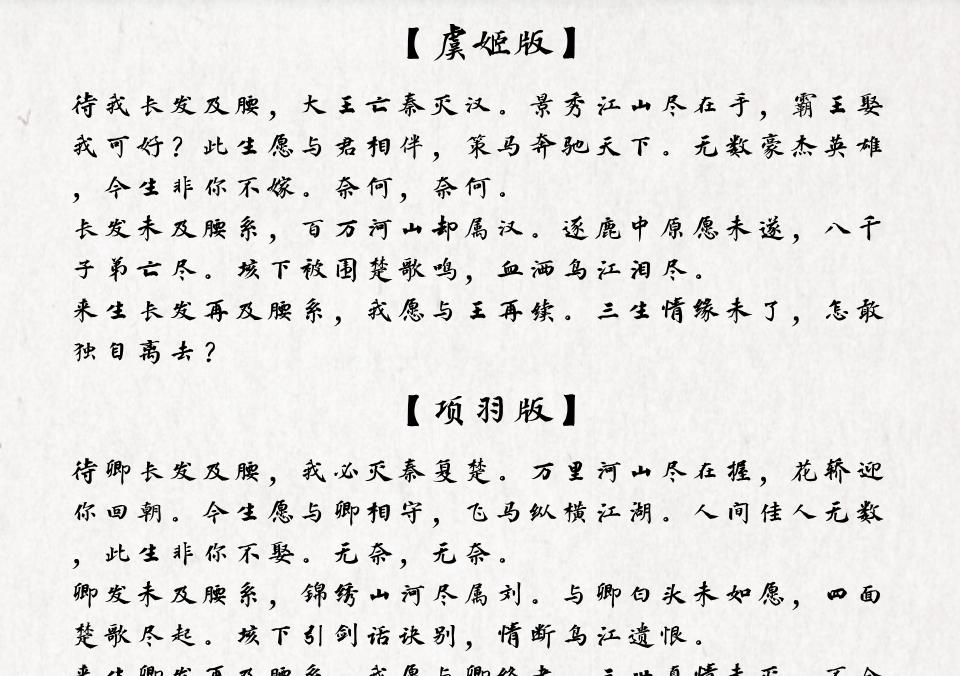 【虞姬版】
待我长发及腰，大王亡秦灭汉。景秀江山尽在手，霸王娶
我可好？此生愿与君相伴，策马奔驰天下。无数豪杰英雄
，今生非你不嫁。奈何，奈何。
长发未及腰系，百万河山却属汉。逐鹿中原愿未遂，八千
子弟亡尽。垓下被围楚歌鸣，血洒乌江泪尽。
来生长发再及腰系，我愿与王再续。三生情缘未了，怎敢
独自离去？
【项羽版】
待卿长发及腰，我必灭秦复楚。万里河山尽在握，花轿迎
你回朝。今生愿与卿相守，飞马纵横江湖。人间佳人无数
，此生非你不娶。无奈，无奈。
卿发未及腰系，錦绣山河尽属刘。与卿白头未如愿，四面
楚歌尽起。垓下引剑话诀别，情断乌江遗恨。
来生卿发再及腰系，我愿与卿终老。三世真情未灭，不